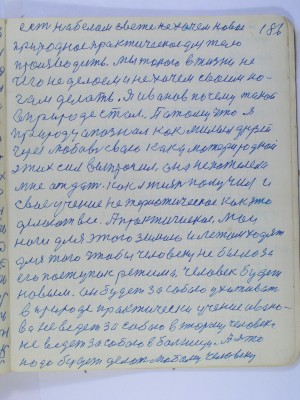 186
ект на белом свете не хочем новое
природное практическое для тела
производить. мы такого в жизни не
чего не делаем и не хочем своим но-
гам делать. Я Иванов почему такой
в природе стал. Я потому что я
природу опознал как милых друзей
через любовь свою как я матери родной
этих сил выпросил. она не пожалела
мне отдать. как я их получил и
свое учение не теоретическое как это
делают все. А практическое, мои
ноги для этого зимою и летом ходят
для того чтобы человеку не было за
его поступок режима. человек будет
новым. он будет за собою ухаживать
в природе практически учение Ивано-
ва не ведет за собою в тюрьму человека
не ведет за собою в больницу. А это
надо будет делать любому человеку